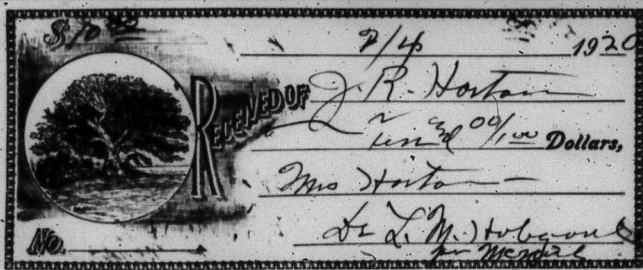 $10 00
2/4 1920
RECEIVED OF J. R. Horton
Ten and 00/100 Dollars,
Mrs Horton
No. Dr L. M.
per